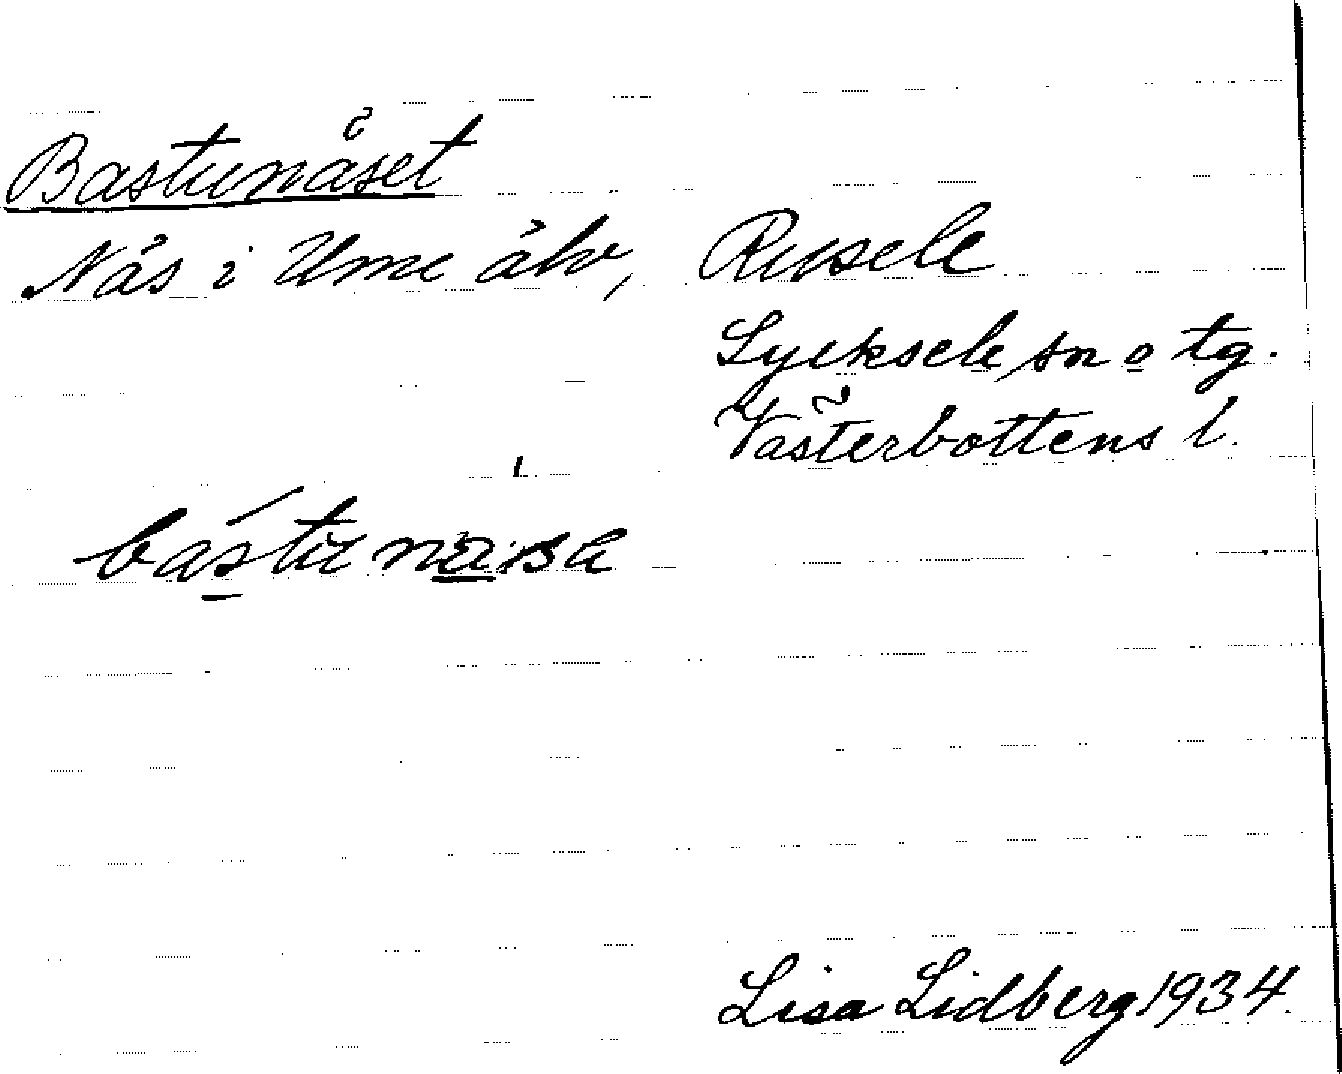 Bastunäset
Näs i Ume älv, Rusele
Lycksele sn o tg.
Västerbottens l.
Lisa Lidberg 1934.